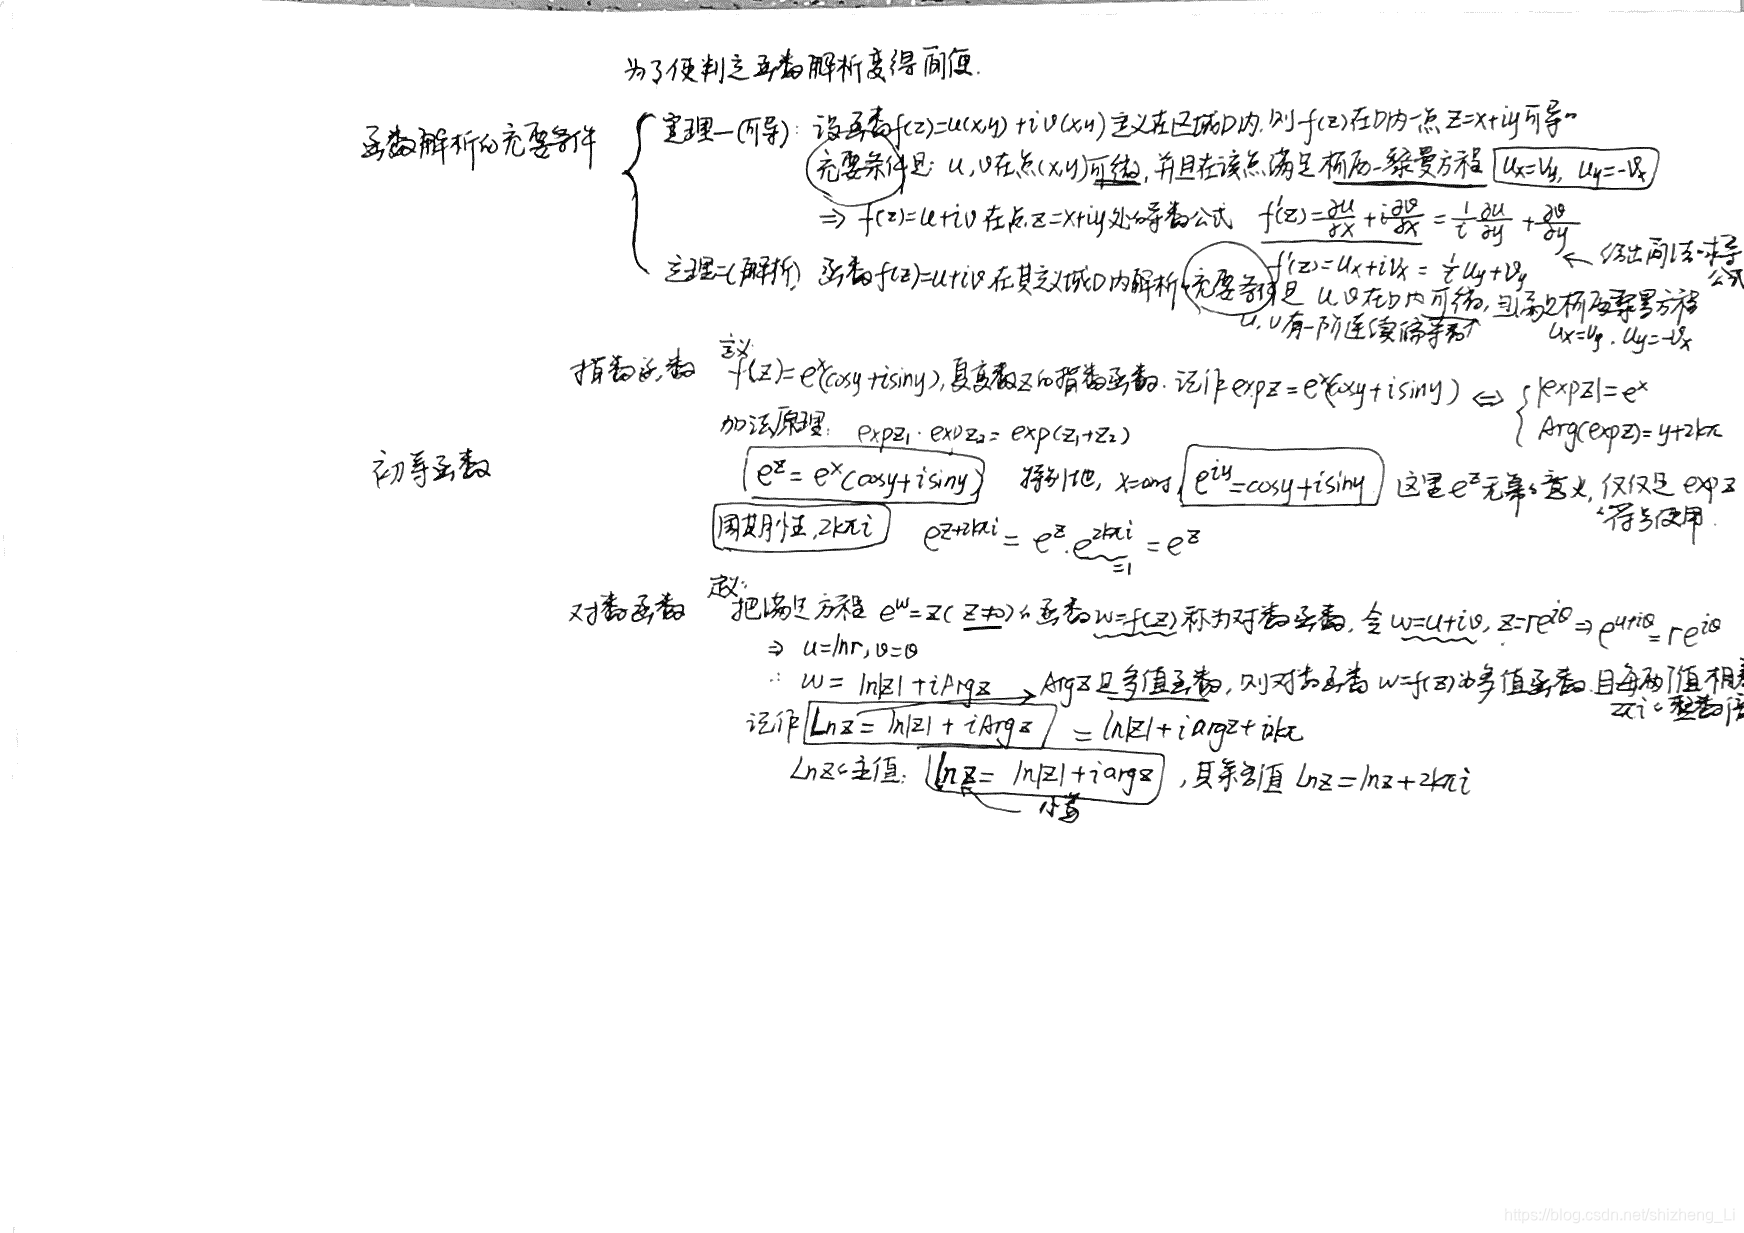 为了使判定函数解析变得简便.
函数解析的充要条件
定理一(可导): 设函数f(z)=u(x,y)+iv(x,y)定义在区域D内,则f(z)在D内一点z=x+iy可导的
充要条件是: u,v在点(x,y)可微,并且在该点满足柯西-黎曼方程 u_x=v_y, u_y=-v_x
⇒ f(z)=u+iv在点z=x+iy处的导数公式 f'(z)=∂u/∂x+i∂v/∂x=1/i ∂u/∂y+∂v/∂y
f'(z)=u_x+iv_x=1/i u_y+v_y ← 给出简洁的求导公式
定理二(解析) 函数f(z)=u+iv在其定义域D内解析的充要条件是 u,v在D内可微,且满足柯西黎曼方程
u,v有一阶连续偏导数↑ u_x=v_y, u_y=-v_x
初等函数
指数函数 定义: f(z)=e^x(cosy+isiny),复变数z的指数函数.记作expz=e^x(cosy+isiny) ⇔ { |expz|=e^x
Arg(expz)=y+2kπ
加法原理: expz₁·expz₂=exp(z₁+z₂)
e^z=e^x(cosy+isiny) 特别地, x=0时, e^{iy}=cosy+isiny 这里e^z无幂的意义,仅仅是expz
的符号使用.
周期性,2kπi e^{z+2kπi}=e^z·e^{2kπi}=e^z
=1
对数函数 定义: 把满足方程e^w=z(z≠0)的函数w=f(z)称为对数函数,令w=u+iv, z=re^{iθ}⇒e^{u+iv}=re^{iθ}
⇒ u=lnr, v=θ
∴ w=ln|z|+iArgz → Argz是多值函数,则对数函数w=f(z)为多值函数.且每两个值相差
2πi的整数倍
记作 Lnz=ln|z|+iArgz =ln|z|+iargz+i2kπ
Lnz的主值: lnz=ln|z|+iargz ,其余各值Lnz=lnz+2kπi
小写
https://blog.csdn.net/shizheng_Li